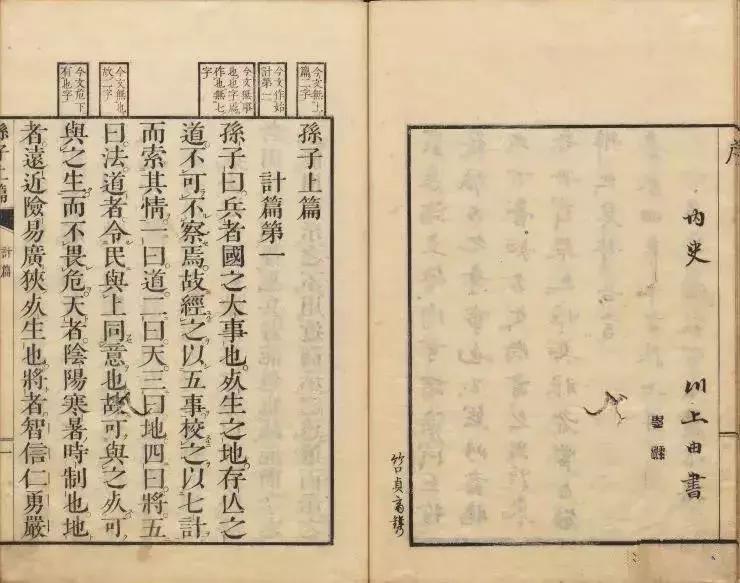 序
内史 川上由書
竹口貞鐫
今文無上
篇二字
今文作始
計第一
今文無事
也也字焉
作也無七
字
今文無也
故二字
今文危下
有也字
孫子上篇
計篇第一
孫子曰兵者國之大事也死生之地存亾之
道不可不察焉故經之以五事校之以七計
而索其情一曰道二曰天三曰地四曰將五
曰法道者令民與上同意也故可與之死可
與之生而不畏危天者陰陽寒暑時制也地
者遠近險易廣狹死生也將者智信仁勇嚴
孫子上篇 計篇 一